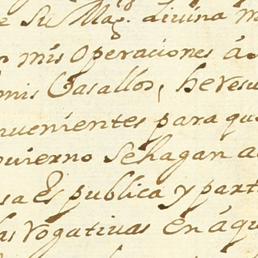 e Su Mag.d divina m
n mis Operaciones á
mis Vasallos, he resu
nvenientes para qu
ouierno se hagan a
sa Es publica y part
las rogativas en aqu